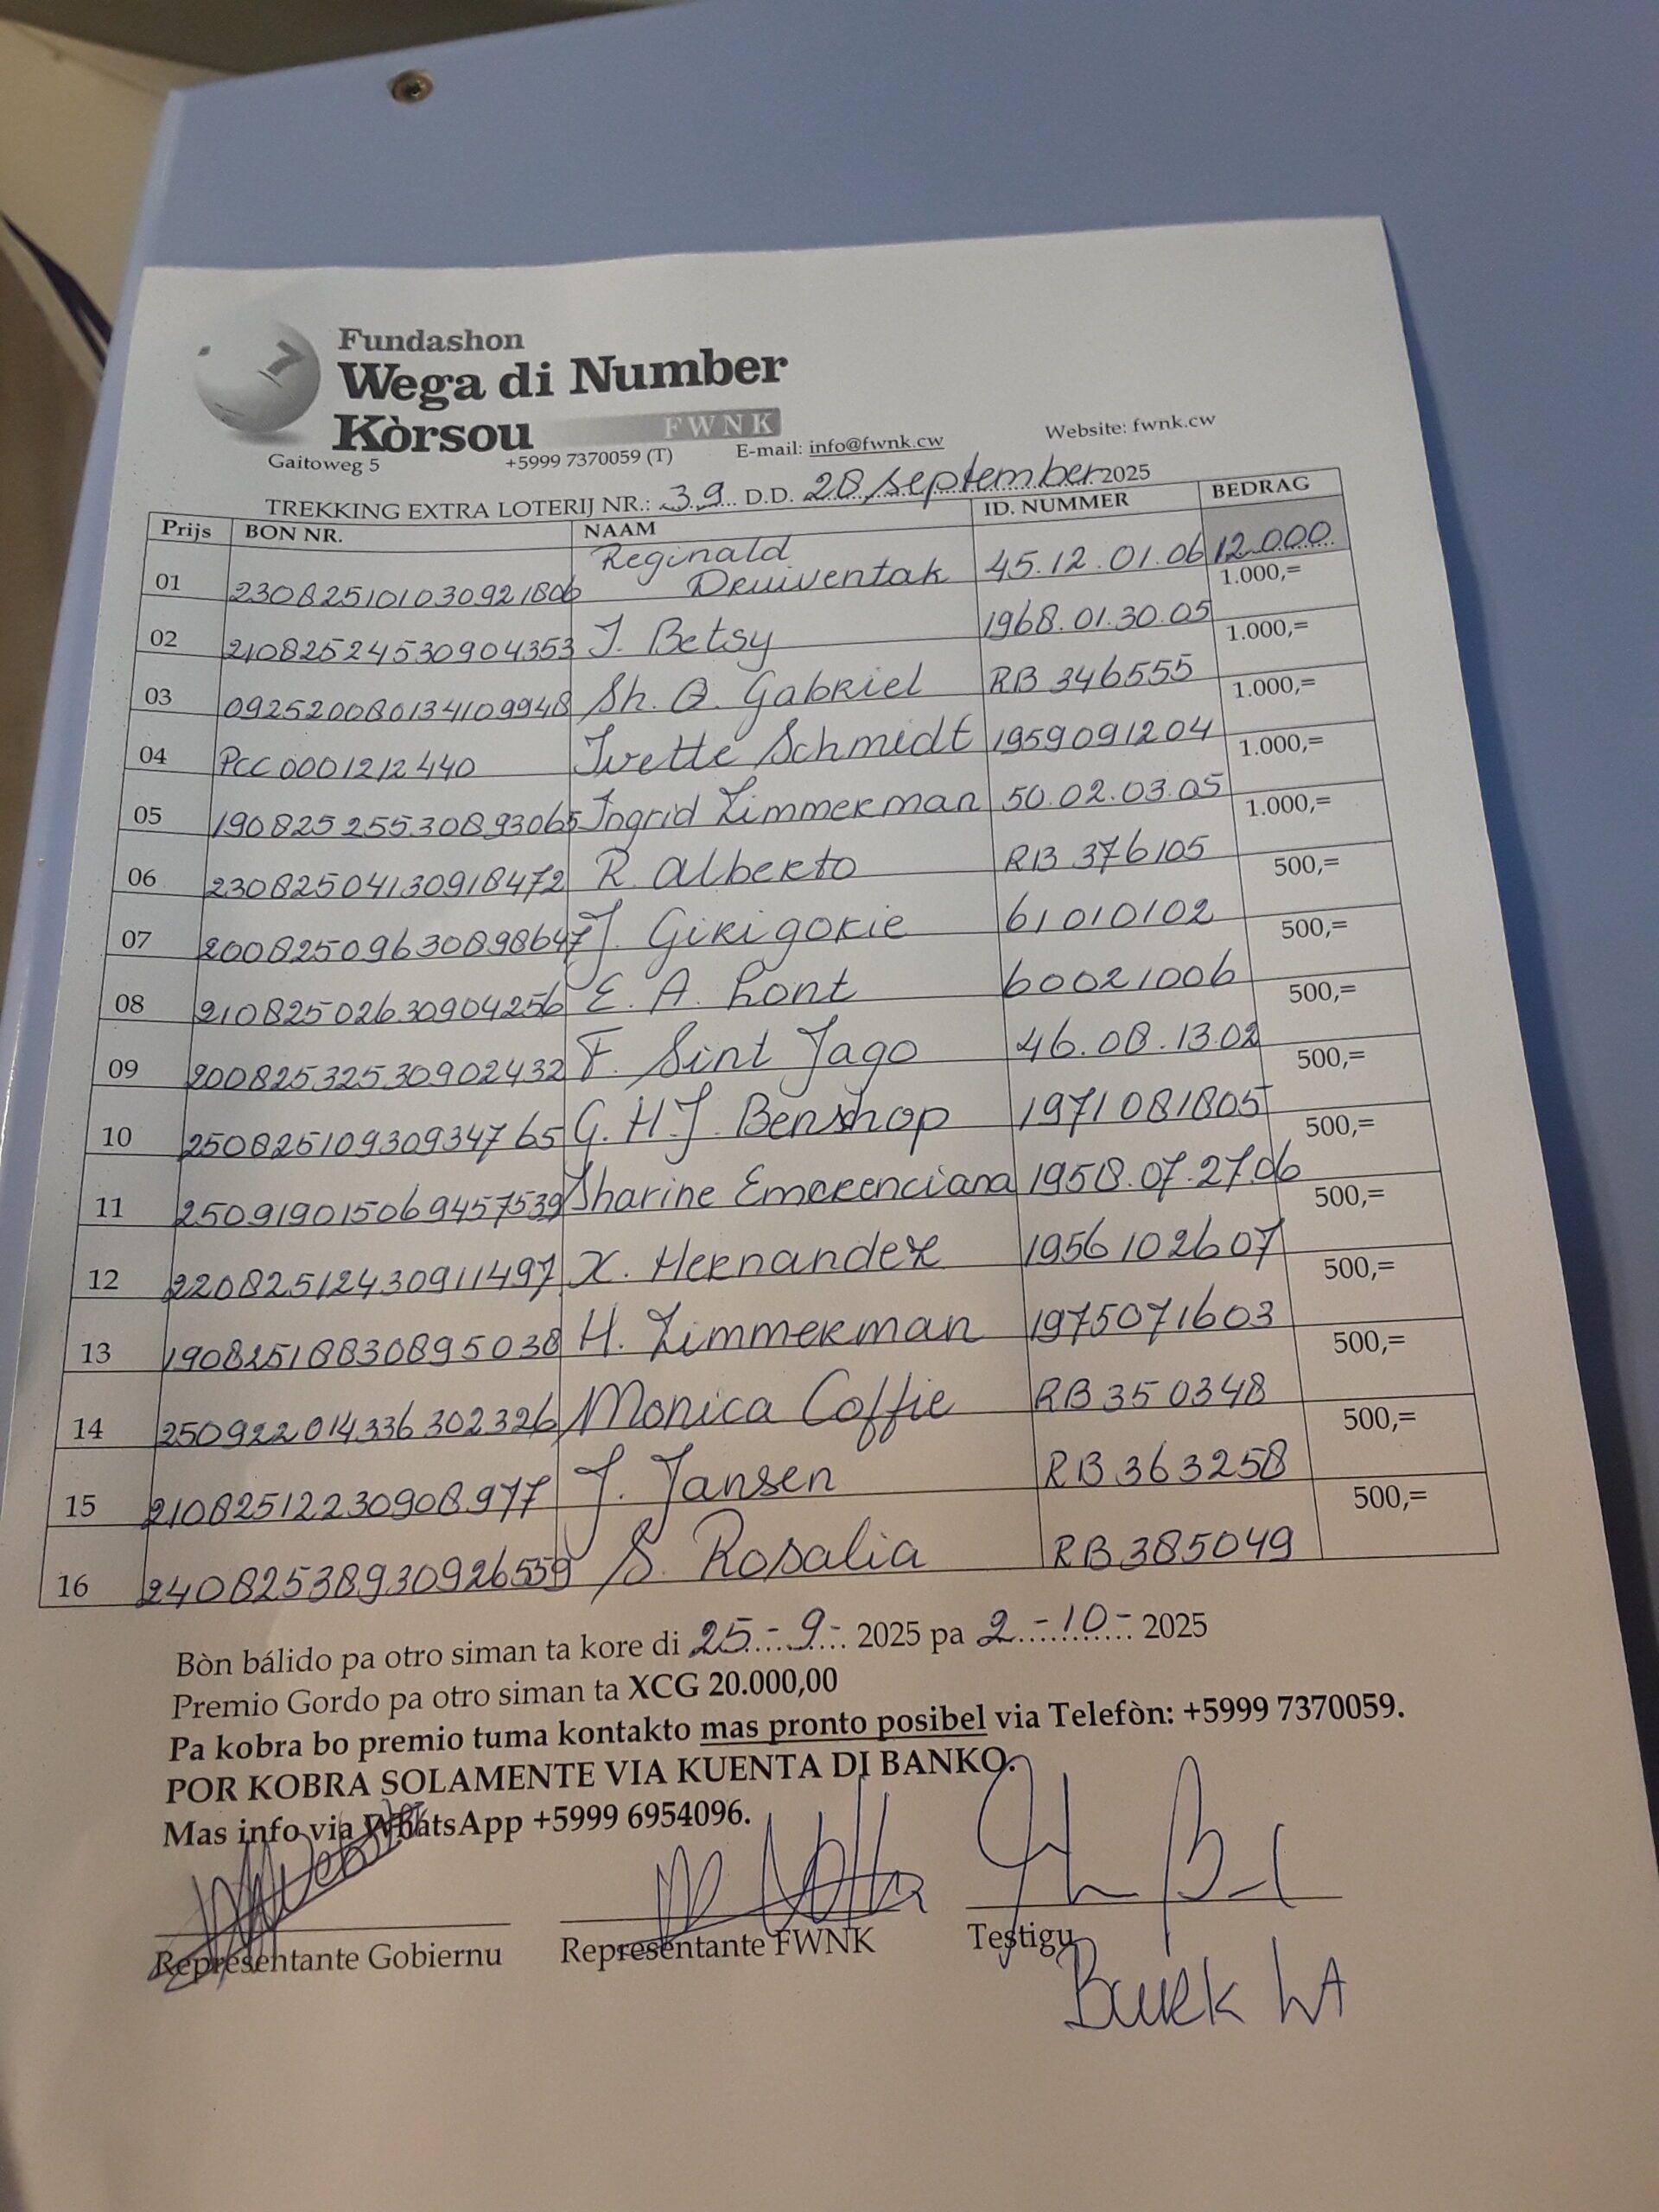 7
Fundashon
Wega di Number
Kòrsou FWNK
Gaitoweg 5 +5999 7370059 (T) E-mail: info@fwnk.cw Website: fwnk.cw
TREKKING EXTRA LOTERIJ NR.: 39 D.D. 28 september 2025
Prijs BON NR. NAAM ID. NUMMER BEDRAG
01 230825101030921806 Reginald Druiventak 45.12.01.06 12.000
02 21082524530904353 J. Betsy 1968.01.30.05 1.000,=
03 092520080134109948 Sh. Q. Gabriel RB 346555 1.000,=
04 PCC0001212440 Ivette Schmidt 1959091204 1.000,=
05 19082525530893065 Ingrid Zimmerman 50.02.03.05 1.000,=
06 23082504130918472 R. Alberto RB 376105 1.000,=
07 20082509630898647 J. Girigorie 61010102 500,=
08 21082502630904256 E. A. Lont 60021006 500,=
09 20082532530902432 F. Sint Jago 46.08.13.02 500,=
10 250825109309347 65 G. H.J. Benshop 1971081805 500,=
11 250919015069457539 Sharine Emerenciana 1958.07.27.06 500,=
12 22082512430911497 X. Hernandez 1956102607 500,=
13 19082518830895038 H. Zimmerman 1975071603 500,=
14 250922014336302326 Monica Coffie RB350348 500,=
15 21082512230908977 J. Jansen RB363258 500,=
16 24082538930926559 S. Rosalia RB385049 500,=
Bòn bálido pa otro siman ta kore di 25 - 9 - 2025 pa 2 - 10 - 2025
Premio Gordo pa otro siman ta XCG 20.000,00
Pa kobra bo premio tuma kontakto mas pronto posibel via Telefòn: +5999 7370059.
POR KOBRA SOLAMENTE VIA KUENTA DI BANKO.
Mas info via WhatsApp +5999 6954096.
Representante Gobiernu Representante FWNK Testigu